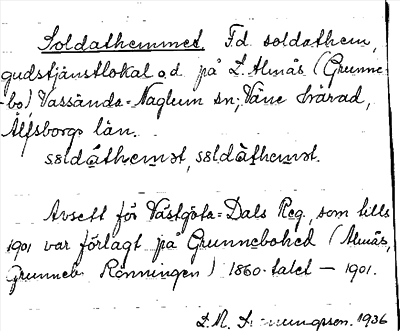 Soldathemmet. F.d. soldathem,
gudstjänstlokal o.d. på L. Almås (Grunne-
-bo) Vassända-Naglum sn; Väne härad,
Älfsborgs län.
səldáthemət, səldàthemət.
Avsett för Västgöta-Dals Reg., som tills
1901 var förlagt på Grunnebohed (Almås,
Grunneb Rönningen) 1860-talet – 1901.
1936